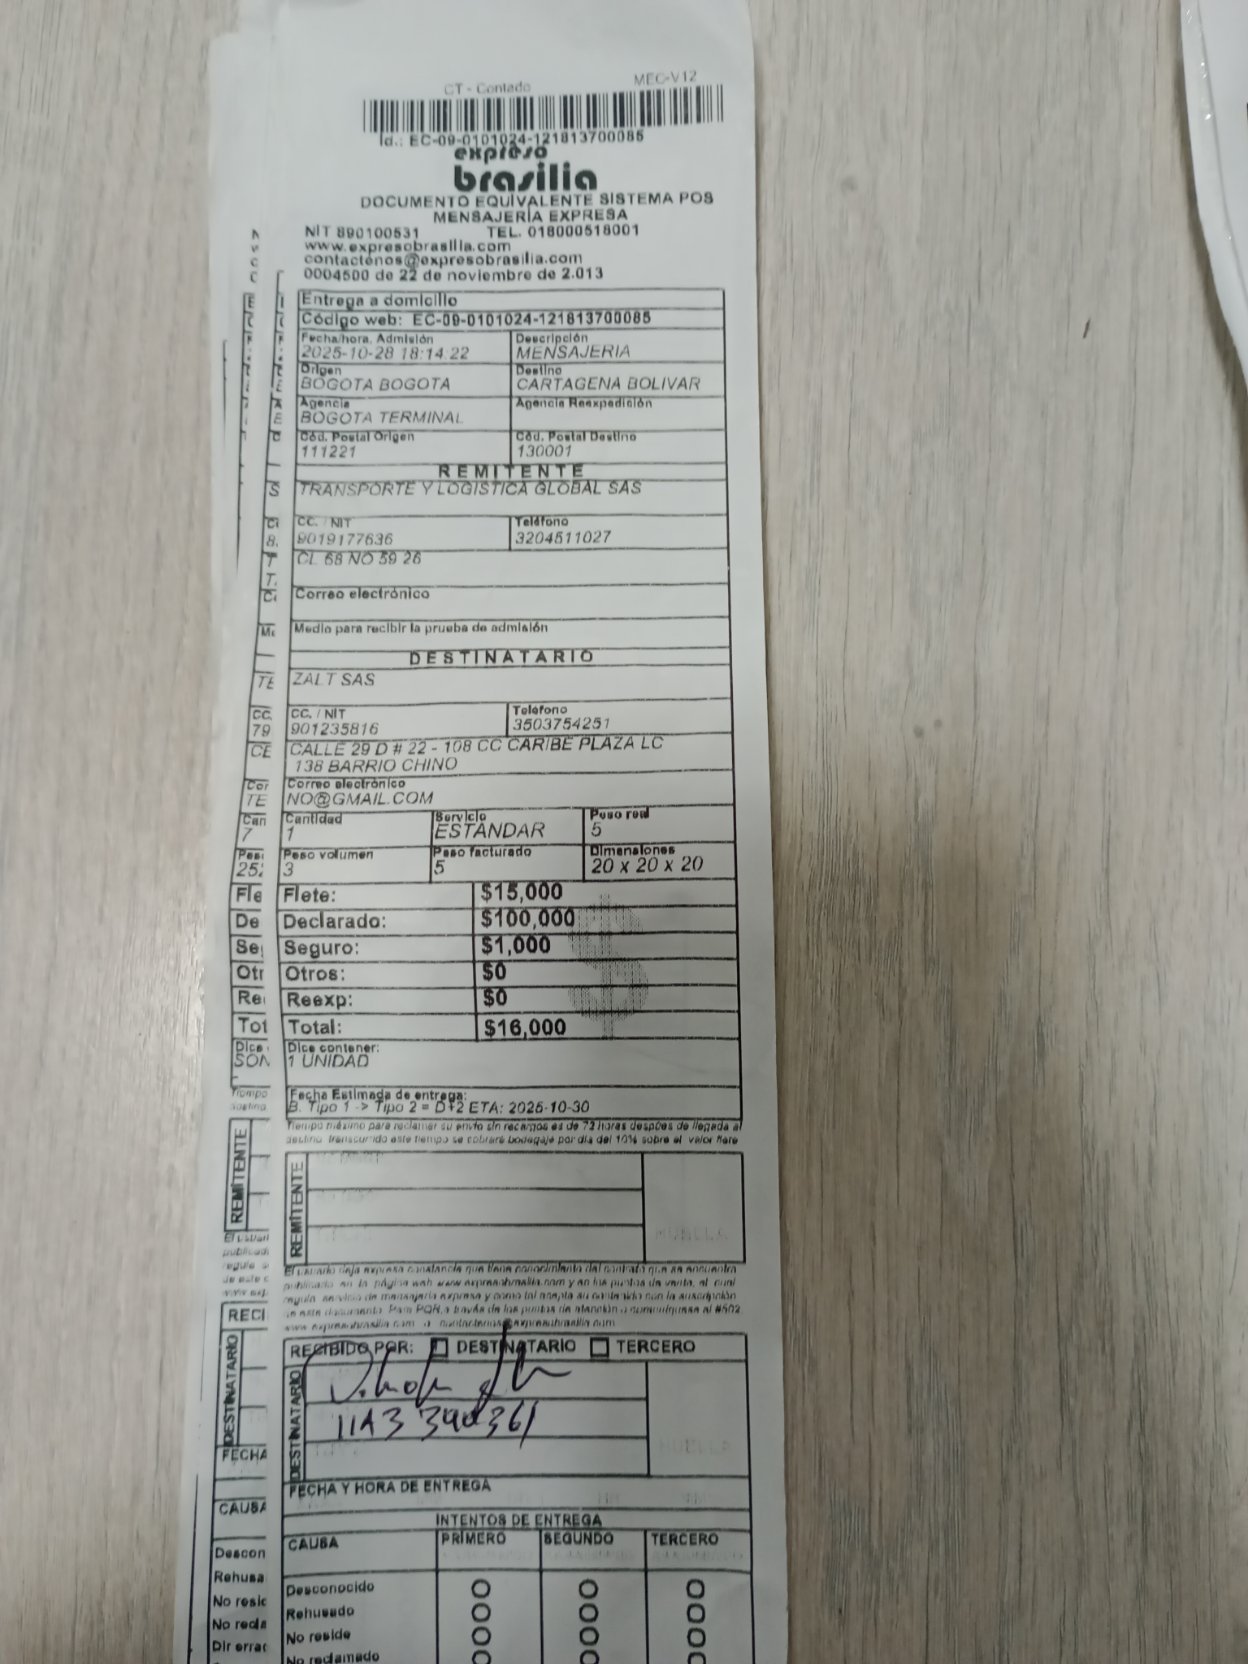 CT - Contado MEC-V12
Id.: EC-09-0101024-121813700085
expreso
brasilia
DOCUMENTO EQUIVALENTE SISTEMA POS
MENSAJERÍA EXPRESA
NIT 890100531 TEL. 018000518001
www.expresobrasilia.com
contactenos@expresobrasilia.com
0004500 de 22 de noviembre de 2.013
Entrega a domicilio
Código web: EC-09-0101024-121813700085
Fecha/hora. Admisión Descripción
2025-10-28 18:14:22 MENSAJERIA
Origen Destino
BOGOTA BOGOTA CARTAGENA BOLIVAR
Agencia Agencia Reexpedición
BOGOTA TERMINAL
Cód. Postal Origen Cód. Postal Destino
111221 130001
REMITENTE
TRANSPORTE Y LOGISTICA GLOBAL SAS
CC. / NIT Teléfono
9019177636 3204511027
CL 68 NO 59 26
Correo electrónico
Medio para recibir la prueba de admisión
DESTINATARIO
ZALT SAS
CC. / NIT Teléfono
901235816 3503754251
CALLE 29 D # 22 - 108 CC CARIBE PLAZA LC
138 BARRIO CHINO
Correo electrónico
NO@GMAIL.COM
Cantidad Servicio Peso real
1 ESTANDAR 5
Peso volumen Peso facturado Dimensiones
3 5 20 x 20 x 20
Flete: $15,000
Declarado: $100,000
Seguro: $1,000
Otros: $0
Reexp: $0
Total: $16,000
Dice contener:
1 UNIDAD
Fecha Estimada de entrega:
B. Tipo 1 -> Tipo 2 = D+2 ETA: 2025-10-30
Tiempo máximo para reclamar su envío sin recargos es de 72 horas después de llegada al
destino, transcurrido este tiempo se cobrará bodegaje por día del 10% sobre el valor flete
REMITENTE
El usuario deja expresa constancia que tiene conocimiento del contrato que se encuentra
publicado en la página web www.expresobrasilia.com y en los puntos de venta, el cual
regula servicio de mensajería expresa y como tal acepta su contenido con la suscripción
de este documento. Para PQR, a través de los puntos de atención o comuníquese al #502
www.expresobrasilia.com o contactenos@expresobrasilia.com
RECIBIDO POR: DESTINATARIO TERCERO
DESTINATARIO
FECHA Y HORA DE ENTREGA
INTENTOS DE ENTREGA
CAUSA PRIMERO SEGUNDO TERCERO
Desconocido
Rehusado
No reside
No reclamado